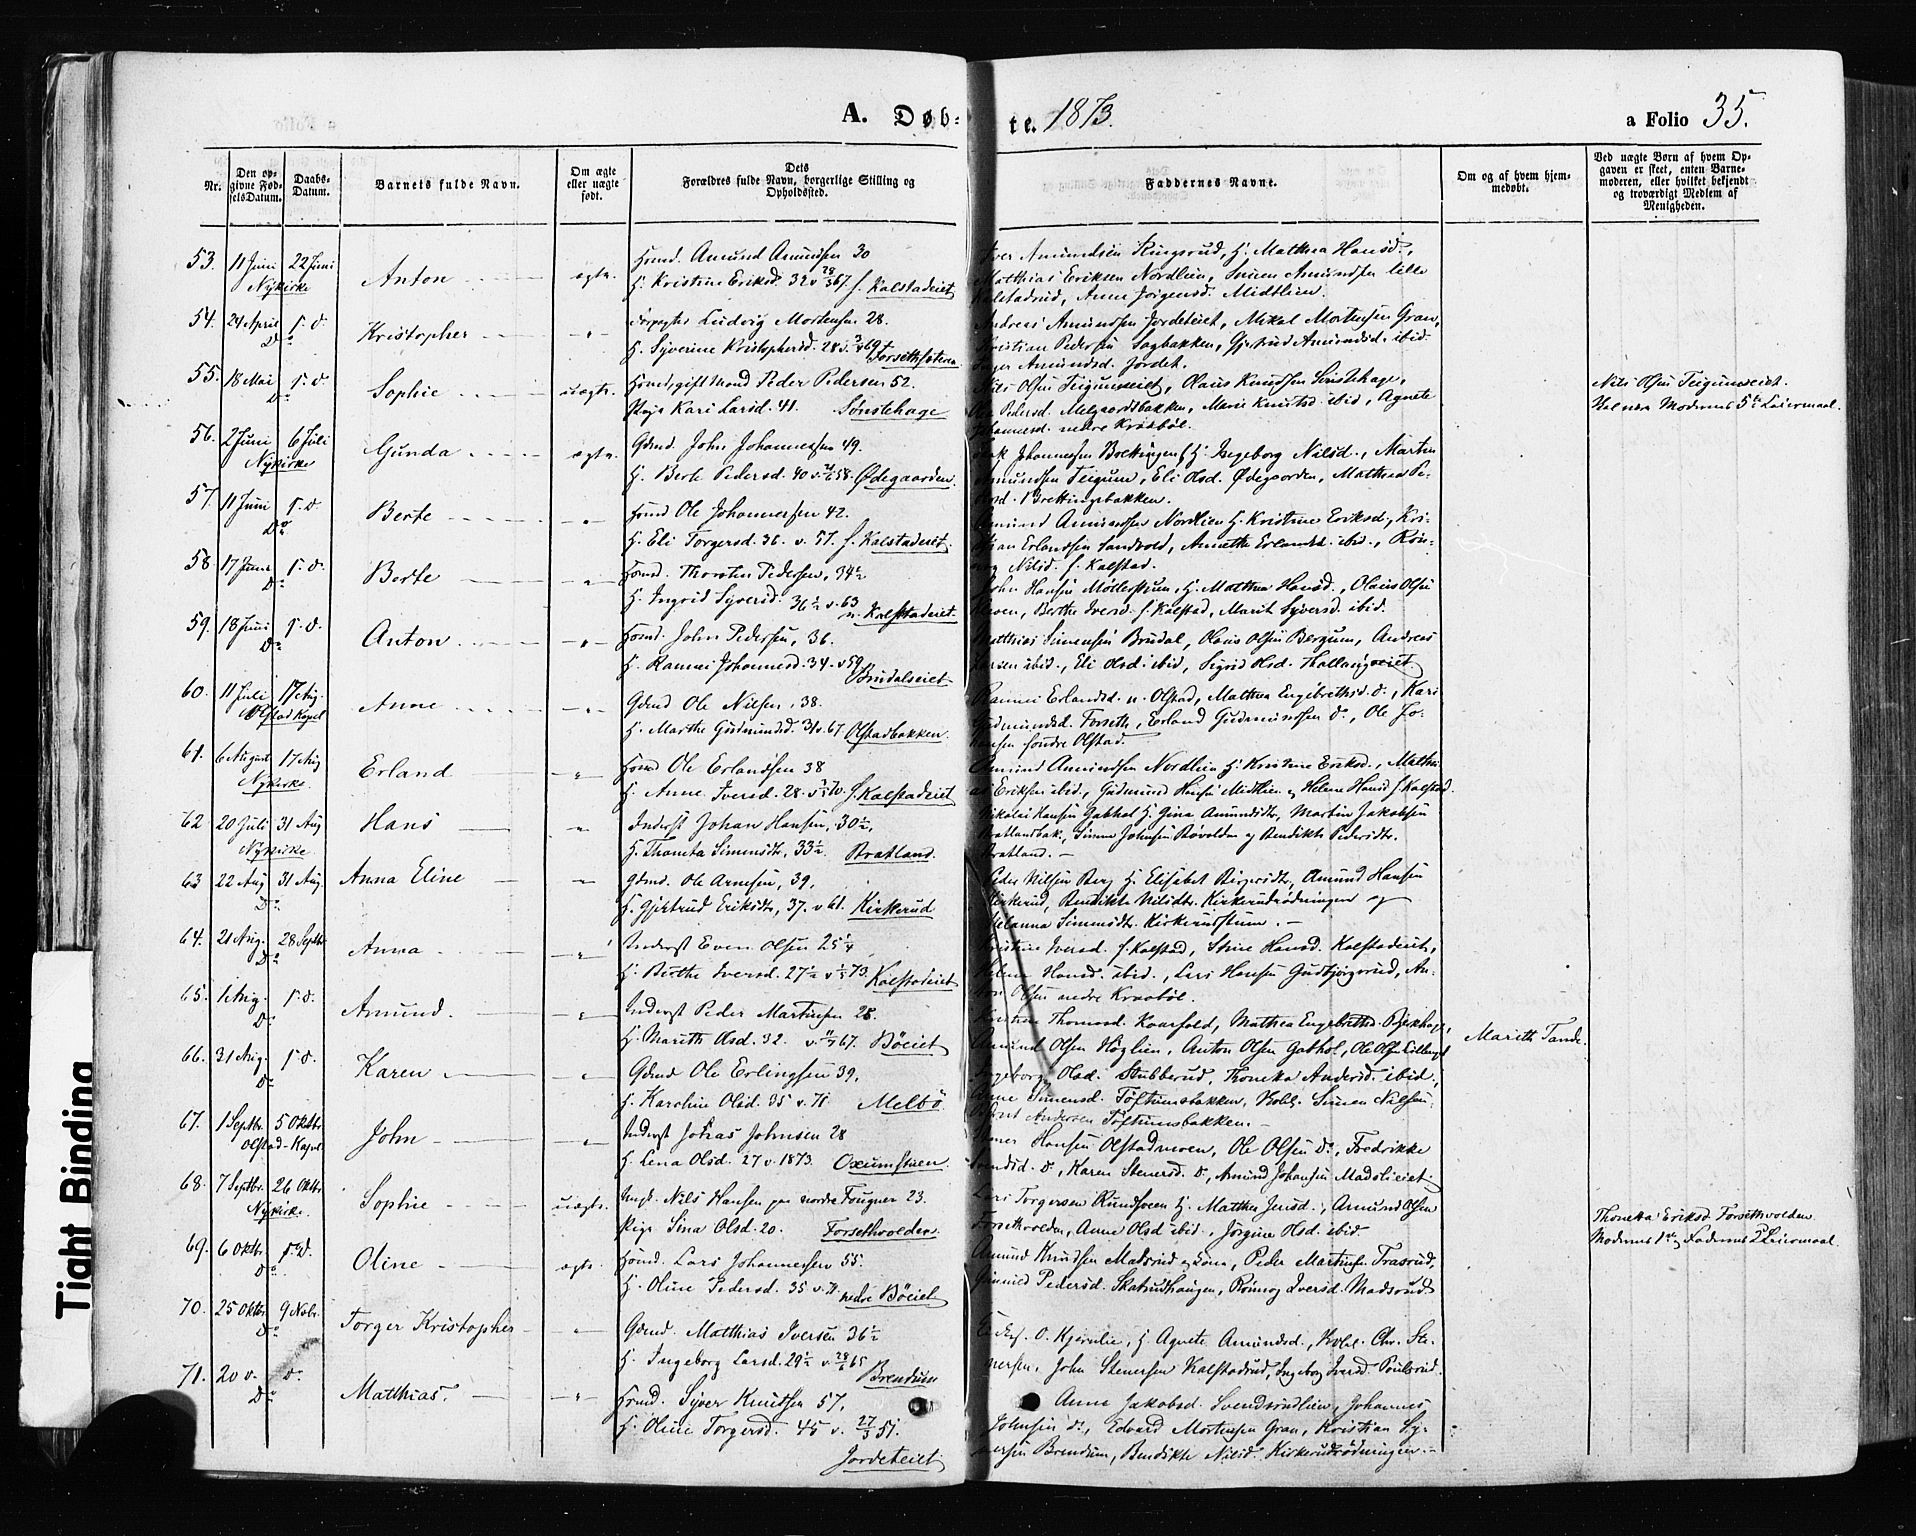 A. Døb-
te. 1873.
a Folio 35.
Nr.
Den op-
givne Fød-
selsDatum.
Daabs-
Datum.
Barnets fulde Navn.
Om ægte
eller uægte
født.
Dets
Forældres fulde Navn, borgerlige Stilling og
Opholdssted.
Faddernes Navne.
Om og af hvem hjem-
medøbt.
Ved uægte Børn af hvem Op-
gaven er skeet, enten Barne-
moderen, eller hvilket bekjendt
og troværdigt Medlem af
Menigheden.
53. 11 Juni 22 Juni
Nykirke
Anton ægte
Husmd. Amund Amundsen 30
H. Kristine Eriksd. 32 v 67. f. Kalstadeiet
Amundsen Ringsrud, H. Mathea Hansd.,
Matthias Eriksen Nordlien, Simen Amundsen lille
Kalstadrud, Anne Jørgensd. Midtlien.
54. 24 April s. d.
Do
Kristopher "
Ludvig Mortensen 28.
H. Syverine Kristophersd. 28 v. 69 Forsethsæteren
Andreas Amundsen Jordeteiet, Mikal Mortensen Gran,
Kristian Pedersen Sagbakken, Gjertrud Amundsd. ibid.
Inger Amundsd. Jordet.
55. 18 Mai s. d.
Do
Sophie uægte
gift Mand Peder Pedersen 52.
Pige Kari Larsd. 41. Sønstehage
Nils Olsen Teigumseiet, Olaus Knudsen Sønstehage,
Pedersd. Melgaardsbakken, Marie Knutsd. ibid, Agnete
Johannesd. nedre Kraabøl.
Nils Olsen Teigumseiet.
Moderens 5te Leiermaal.
56. 2 Juni 6 Juli
Nykirke
Gunda ægte
Gdmd. John Johannessen 49.
H. Berte Pedersd. 40 v 58. Ødegaarden.
Johannessen H. Ingeborg Nilsd., Martin
Amundsen Teigum, Eli Olsd. Ødegaarden, Mathea Pe-
dersd. Brettingsbakken.
57. 11 Juni s. d.
Do
Berte "
Husmd Ole Johannessen 42.
H. Eli Torgersd. 36. v. 57. f. Kalstadeiet.
Amund Amundsen Nordlien H. Kristine Eriksd., Kri-
stian Erlandsen Sandvold, Annette Erlandsd. ibid., Rön-
Nilsd. f. Kalstad.
58. 17 Juni s. d.
Do
Berte "
Husmd. Thorsten Pedersen, 34½
H. Ingrid Syversd. 36½ v. 63
n. Kalstadeiet.
John Hansen H. Mathea Hansd., Olaus Olsen
Berthe Iversd. f. Kalstad, Marit Syversd. ibid.
59. 18 Juni s. d.
Do
Anton "
Husmd. John Pedersen, 36.
H. Rannei Johannesd. 34. v 59
Brudalseiet
Matthias Simensen Brudal, Olaus Olsen Bergum, Andreas
Larsen ibid., Eli Olsd. ibid, Sigrid Olsd.
60. 11 Juli 17 Aug.
Olstad Kapel
Anne "
Gdmd Ole Nilsen, 38.
H. Marthe Gudmundsd. 31 v. 67 Olstadbakken.
Rannei Erlandsd. n. Olstad, Mathea Engebrethsd. Do, Kari
Gudmundsd. Forseth, Erland Gudmundsen Do, Ole Jo-
hansen søndre Olstad.
61. 6 August 17 Aug
Nykirke.
Erland "
Husmd Ole Erlandsen 38
H. Anne Iversd. 28. v 70. f. Kalstadeiet
Amund Amundsen Nordlien H. Kristine Eriksd., Matthi-
as Eriksen ibid, Gudmund Hansen Midtlien og Helene Hansd f. Kalstad.
62 20 Juli 31 Aug
Nykirke
Hans "
Inderst Johan Hansen, 30½,
H. Thoneta Simensdtr, 33½ Bratland.
Nikolai Hansen Gabhol H. Gina Amundsdtr, Martin Jakobsen
Bratlandsbak, Simen Johnsen og Bendikte Pedersdtr.
Bratland. –
63 22 Aug 31 Aug.
Do
Anna Eline "
Gdmd. Ole Arnesen, 39.
H. Gjertrud Eriksdtr, 37. v 61. Kirkerud
Peder Nilsen Berg H. Elisabet Birgersdtr, Amund Hansen
Kirkerud, Bendikte Nilsdtr. Kirkerudrødningen og
Simensdtr. Kirkerudstuen. –
64. 21 Aug. 28 Septbr
Do
Anna "
Inderst Even Olsen 25¼
H. Berthe Iversd. 27½ v 73. Kalstadeiet
Kristine Iversd. f. Kalstad, Stine Hansd. Kalstadeiet,
Helene Hansd. ibid., Lars Hansen Gudbjørgsrud, An-
ton Olsen nedre Kraabøl.
65. 1 Aug. s. d.
Do
Amund. "
Inderst Peder Martinsen 28.
H. Marith Olsd. 32. v. 67. Böeiet
Thomasd. Mathea Engebrethsd.
Amund Olsen Höglien, Anton Olsen Gabhol, Ole Olsen
Marith Tande.
66. 31 Aug. s. d.
Do
Karen "
Gdmd Ole Erlingsen 39.
H. Karoline Olsd. 35 v. 71 Melbö
Ingeborg Olsd. Stubberud, Thoneta Andersd. ibid.,
Anne Simensd. Töftumsbakken, Simen Nilsen,
Andersen Töftumsbakken. –
67. 1 Septbr. 5 Oktbr
Olstad-Kapel
John "
Inderst Johas Johnsen 28
H. Lena Olsd. 27 v. 1873. Oxumstuen.
Hansen Olstadmoen, Ole Olsen Do, Fredrikke
Do, Karen Stenersd. Do, Amund Johansen Madslieiet.
68. 7 Septbr. 26 Oktbr
Nykirke.
Sophie uægte.
Ungk. Nils Hansen paa nordre Fougner 23.
Pige Sina Olsd. 20. Forsethvolden.
Lars Torgersen H. Mathea Jensd., Amund Olsen
Forsethvolden, Anne Olsd ibid., Jörgine Olsd. ibid.
Thoneta Eriksd. Forsethvolden
Moderens 1ste og Faderens 2 Leiermaal.
69. 6 Oktbr s. d.
Do
Oline ægte.
Husmd. Lars Johannessen 55.
H. Oline Pedersd. 35 v. 71. nedre Böeiet
Amund Knudsen Madsrud og Kone, Peder Martinsen
Gunild Pedersd. Skatrudhaugen, Rönnog Iversd. Madsrud
70. 25 Oktbr 9 Novbr.
Do
Torger Kristopher "
Gdmd. Matthias Iversen 36½
H. Ingeborg Larsd. 29½ v 28/6 65
Brendum
O. Kjernlie, H. Agnete Amundsd., Chr. Ste-
nersen, John Stenersen Kalstadrud, Ingeborg Iversd Poulsrud.
71. 20 v. d.
Do
Matthias. "
Husmd. Syver Knudsen 57,
H. Oline Torgersd. 45 v. 27/3 51.
Jordeteiet
Anne Jakobsd. Svendsrudlien, Johannes
Johnsen Do, Edvard Mortensen Gran, Kristian Sy-
versen Brendum, Bendikte Nilsd. Kirkerudrødningen. –
Tight Binding